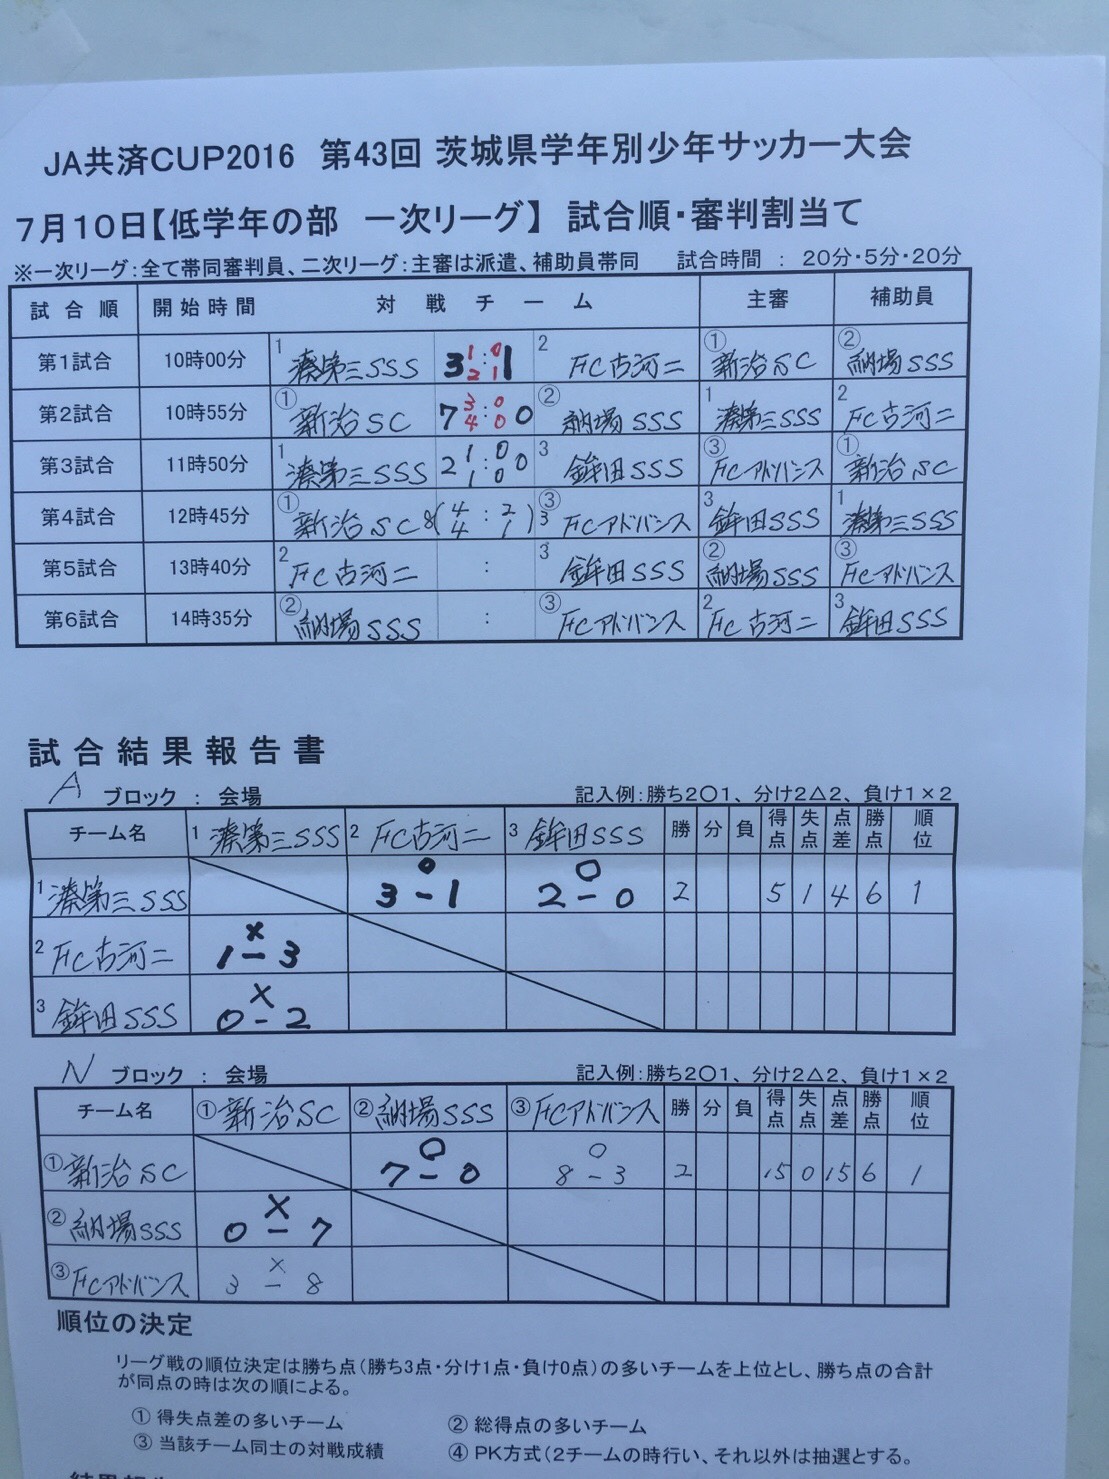 JA共済CUP2016 第43回 茨城県学年別少年サッカー大会
7月10日【低学年の部 一次リーグ】 試合順・審判割当て
※一次リーグ:全て帯同審判員、二次リーグ:主審は派遣、補助員帯同 試合時間 : 20分・5分・20分
試合順 開始時間 対戦チーム 主審 補助員
第1試合 10時00分 1 湊第三SSS 3 1:0 2 1 1 2 FC古河二 ①新治SC ②納場SSS
第2試合 10時55分 ①新治SC 7 3:0 4 0 0 ②納場SSS 1 湊第三SSS 2 FC古河二
第3試合 11時50分 1 湊第三SSS 2 1:0 1 0 0 3 鉾田SSS ③FCアドバンス ①新治SC
第4試合 12時45分 ①新治SC 8(4:2 4 1)3 ③FCアドバンス 3 鉾田SSS 1 湊第三SSS
第5試合 13時40分 2 FC古河二 : 3 鉾田SSS ②納場SSS ③FCアドバンス
第6試合 14時35分 ②納場SSS : ③FCアドバンス 2 FC古河二 3 鉾田SSS
試合結果報告書
A ブロック : 会場 記入例:勝ち2○1、分け2△2、負け1×2
チーム名 1 湊第三SSS 2 FC古河二 3 鉾田SSS 勝 分 負 得点 失点 点差 勝点 順位
1 湊第三SSS ○ 3-1 ○ 2-0 2 5 1 4 6 1
2 FC古河二 × 1-3
3 鉾田SSS × 0-2
N ブロック : 会場 記入例:勝ち2○1、分け2△2、負け1×2
チーム名 ①新治SC ②納場SSS ③FCアドバンス 勝 分 負 得点 失点 点差 勝点 順位
①新治SC ○ 7-0 ○ 8-3 2 15 0 15 6 1
②納場SSS × 0-7
③FCアドバンス × 3-8
順位の決定
リーグ戦の順位決定は勝ち点(勝ち3点・分け1点・負け0点)の多いチームを上位とし、勝ち点の合計
が同点の時は次の順による。
① 得失点差の多いチーム ② 総得点の多いチーム
③ 当該チーム同士の対戦成績 ④ PK方式(2チームの時行い、それ以外は抽選とする。